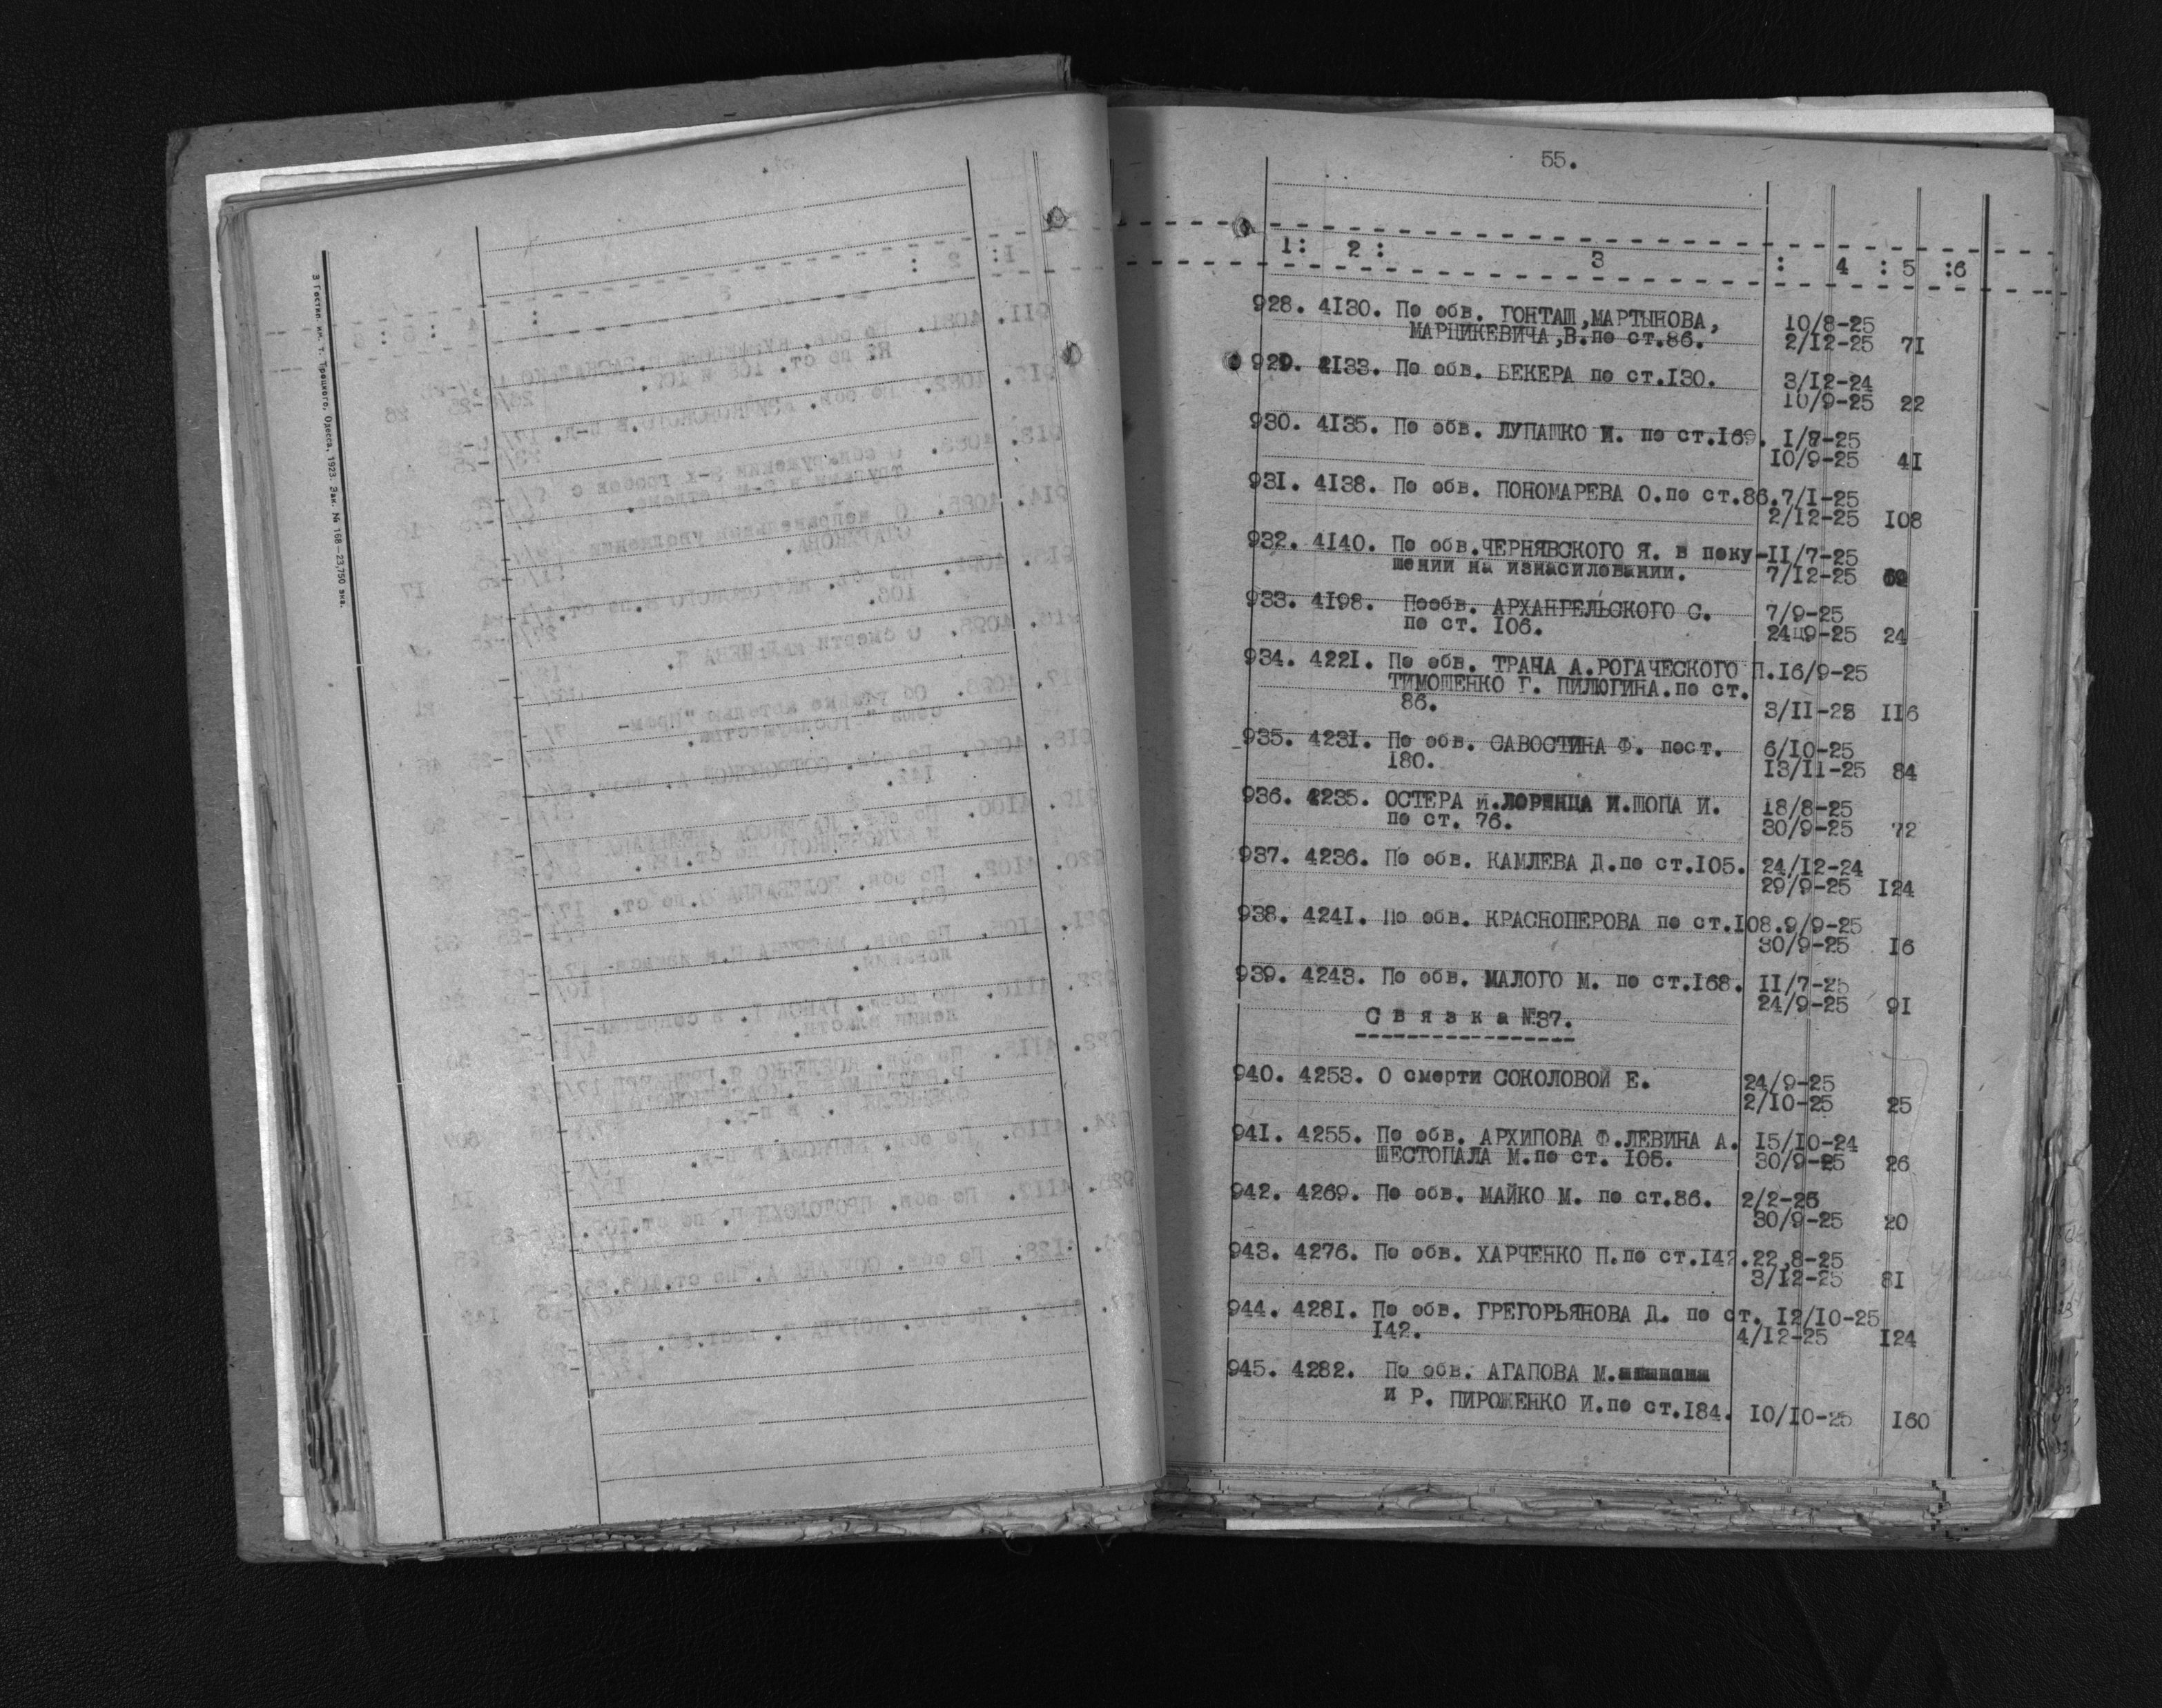 3 Гостип. им. т. Троцкого, Одесса, 1923. Зак. № 168—23,750 экз.
55.
1: 2: 3 : 4 : 5 :6
928. 4130. По обв. ГОНТАШ,МАРТЫНОВА, 10/8-25
МАРЦИКЕВИЧА,В.по ст.86. 2/12-25 71
929. 4133. По обв. БЕКЕРА по ст.130. 3/12-24
10/9-25 22
930. 4135. По обв. ЛУПАШКО И. по ст.169. 1/8-25
10/9-25 41
931. 4138. По обв. ПОНОМАРЕВА О.по ст.86.7/1-25
2/12-25 108
932. 4140. По обв.ЧЕРНЯВСКОГО Я. в поку-11/7-25
шении на изнасиловании. 7/12-25
933. 4198. Пообв. АРХАНГЕЛЬСКОГО С. 7/9-25
по ст. 106. 24ц9-25 24
934. 4221. По обв. ТРАЧА А.РОГАЧЕСКОГО П.16/9-25
ТИМОШЕНКО Г. ПИЛЮГИНА.по ст.
86. 3/11-25 116
935. 4231. По обв. САВОСТИНА Ф. пост. 6/10-25
180. 13/11-25 84
936. 4235. ОСТЕРА И.ЛОРЕНЦА И.ШОПА И. 18/8-25
по ст. 76. 30/9-25 72
937. 4236. По обв. КАМЛЕВА Д.по ст.105. 24/12-24
29/9-25 124
938. 4241. По обв. КРАСНОПЕРОВА по ст.108.9/9-25
30/9-25 16
939. 4243. По обв. МАЛОГО М. по ст.168. 11/7-25
24/9-25 91
Связка №37.
940. 4253. О смерти СОКОЛОВОЙ Е. 24/9-25
2/10-25 25
941. 4255. По обв. АРХИПОВА Ф.ЛЕВИНА А. 15/10-24
ШЕСТОПАЛА М.по ст. 105. 30/9-25 26
942. 4269. По обв. МАЙКО М. по ст.86. 2/2-25
30/9-25 20
943. 4276. По обв. ХАРЧЕНКО П.по ст.142.22,8-25
3/12-25 81
944. 4281. По обв. ГРЕГОРЬЯНОВА Д. по ст. 12/10-25
142. 4/12-25 124
945. 4282. По обв. АГАПОВА М.
и Р. ПИРОЖЕНКО И.по ст.184. 10/10-25 160